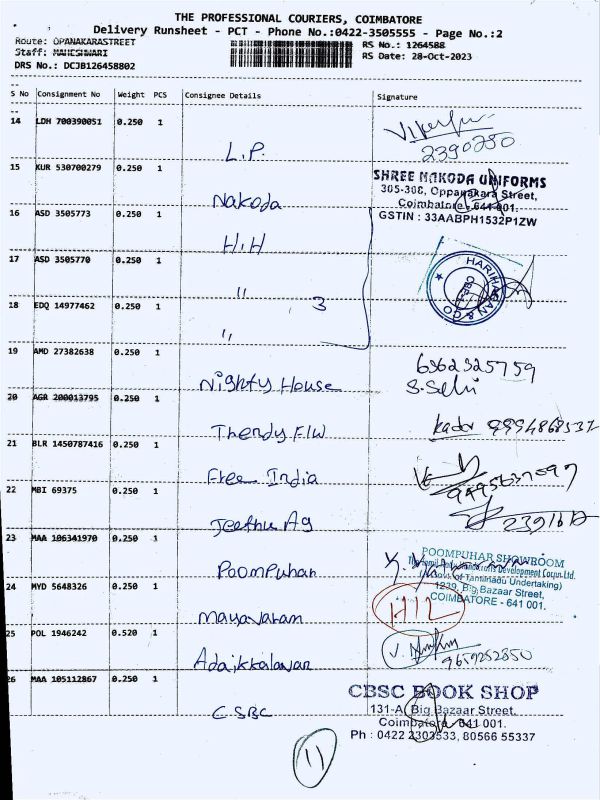 THE PROFESSIONAL COURIERS, COIMBATORE
Delivery Runsheet - PCT - Phone No.:0422-3505555 - Page No.:2
Route: OPANAKARASTREET RS No.: 1264588
Staff: MAHESHWARI RS Date: 28-Oct-2023
DRS No.: DCJB126458802
S No Consignment No Weight PCS Consignee Details Signature
14 LDH 700390051 0.250 1
L.P. 2390280
15 KUR 530700279 0.250 1
Nakoda
SHREE NAKODA UNIFORMS
305-308, Oppanakara Street,
Coimbatore - 641 001.
GSTIN : 33AABPH1532P1ZW
16 ASD 3505773 0.250 1
H.H
17 ASD 3505770 0.250 1
" 3
HARIHARAN & CO
18 EDQ 14977462 0.250 1
"
19 AMD 27382638 0.250 1
Nighty House 6362325759
S. Selvi
20 AGR 200013795 0.250 1
Thendy F/W kador
21 BLR 1450787416 0.250 1
Free India
22 MBI 69375 0.250 1
Jeethu Ag
23 MAA 106341970 0.250 1
Poompuhar
POOMPUHAR SHOWROOM
The Tamil Nadu Handicrafts Development Corpn.Ltd.
(A Govt. of Tamilnadu Undertaking)
1239, Big Bazaar Street,
COIMBATORE - 641 001.
24 MYD 5648326 0.250 1
Mayavaram HIL
25 POL 1946242 0.520 1
Adaikkalavan 9659252850
26 MAA 105112867 0.250 1
CSBC
CBSC BOOK SHOP
131-A, Big Bazaar Street,
Coimbatore - 641 001.
Ph : 0422 2303533, 80566 55337
11